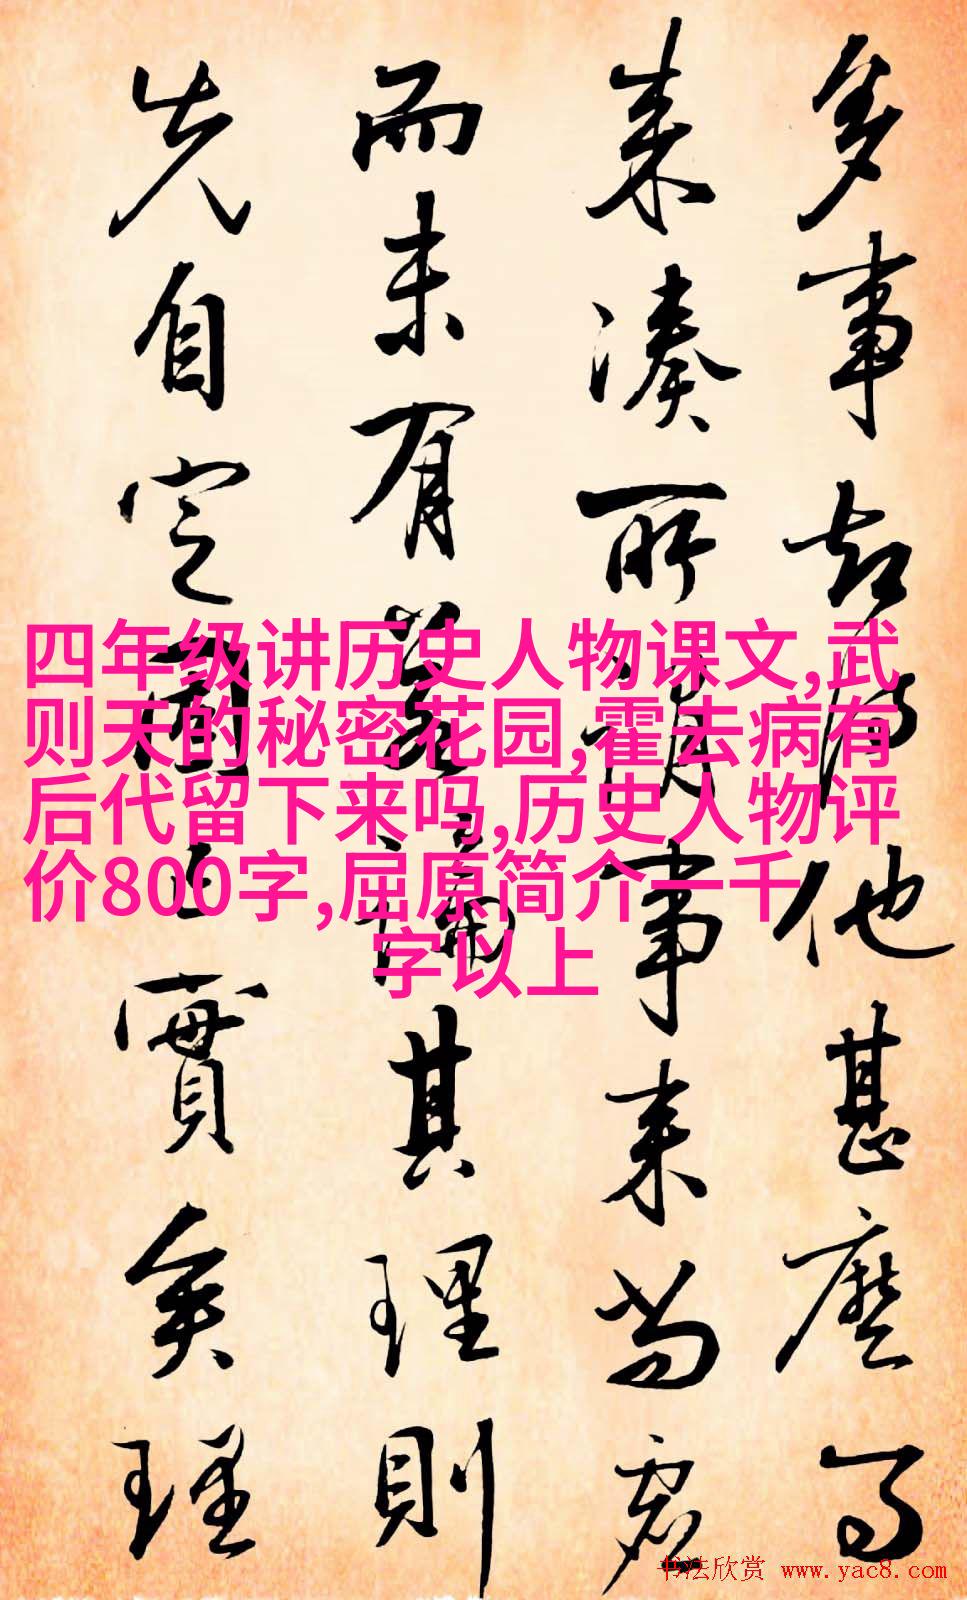 多事却須他甚麽了
來湊所謂事來當
而未有
其理則
先自定
實矣理
四年级讲历史人物课文,武
则天的秘密花园,霍去病有
后代留下来吗,历史人物评
价800字,屈原简介一千
字以上
书法欣赏 www.yac8.com